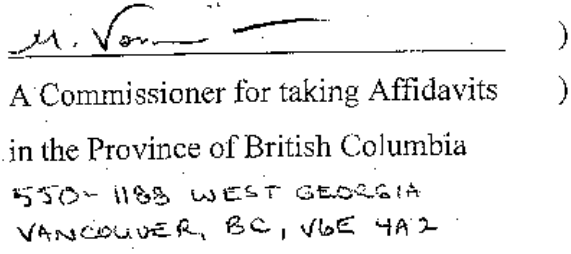 M. )
A Commissioner for taking Affidavits )
in the Province of British Columbia
550-1188 WEST GEORGIA
VANCOUVER, BC, V6E 4A2